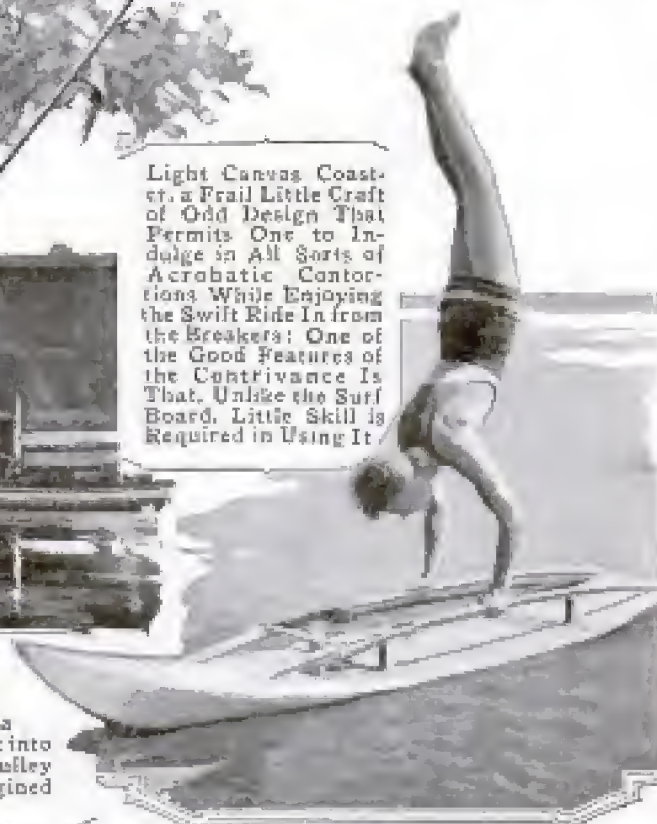 Light Canvas Coast-
er, a Frail Little Craft
of Odd Design That
Permits One to In-
dulge in All Sorts of
Acrobatic Contor-
tions While Enjoying
the Swift Ride In from
the Breakers: One of
the Good Features of
the Contrivance Is
That, Unlike the Surf
Board, Little Skill is
Required in Using It
a
into